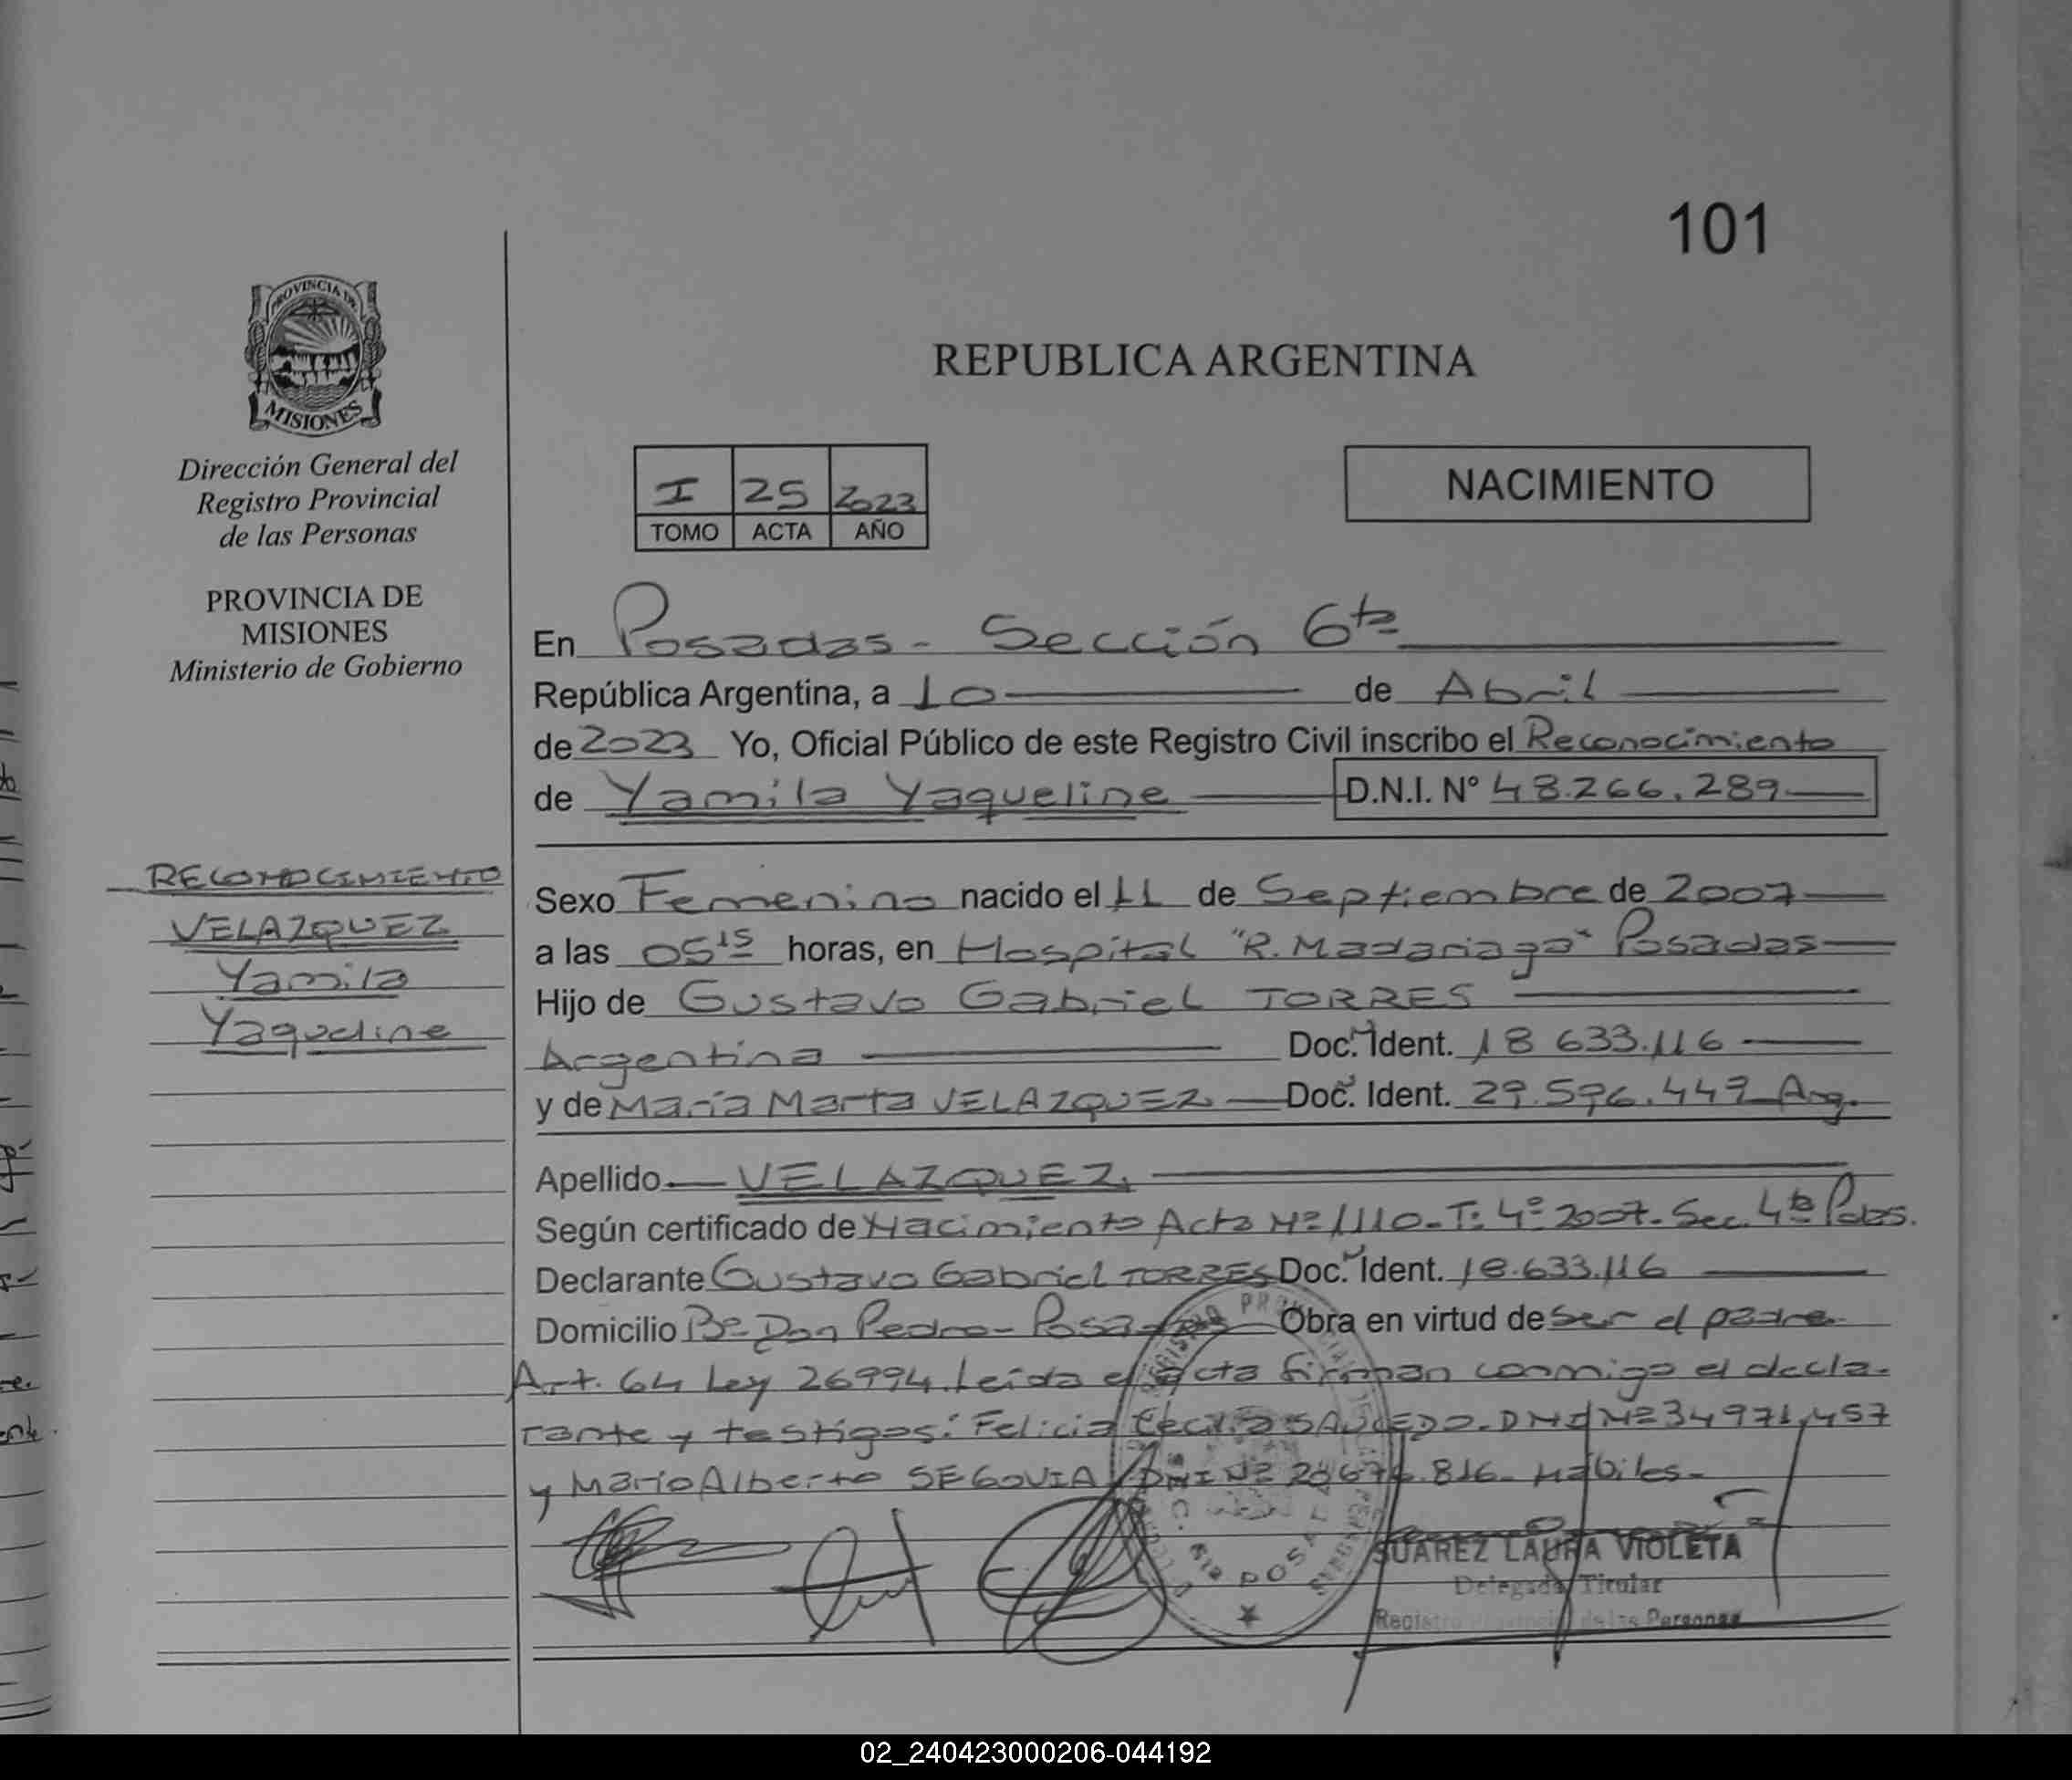 101
PROVINCIA DE
MISIONES
Dirección General del
Registro Provincial
de las Personas
PROVINCIA DE
MISIONES
Ministerio de Gobierno
REPUBLICA ARGENTINA
I 25 2023
TOMO ACTA AÑO
NACIMIENTO
En Posadas - Sección 6ta
República Argentina, a 10 de Abril
de 2023 Yo, Oficial Público de este Registro Civil inscribo el Reconocimiento
de Yamila Yaqueline D.N.I. Nº 48.266.289
RECONOCIMIENTO
VELAZQUEZ
Yamila
Yaqueline
Sexo Femenino nacido el 11 de Septiembre de 2007
a las 05 15 horas, en Hospital "R. Madariaga" Posadas
Hijo de Gustavo Gabriel TORRES
Argentina Doc. Ident. 18 633.116
y de María Marta VELAZQUEZ Doc. Ident. 29.596.449 Arg.
Apellido VELAZQUEZ
Según certificado de Nacimiento Acta Nº 1110 - Tº 4º 2007 - Sec. 4ta Pdas.
Declarante Gustavo Gabriel TORRES Doc. Ident. 18.633.116
Domicilio Bº Don Pedro - Posadas Obra en virtud de ser el padre
Art. 64 Ley 26994. Leída el acta firman conmigo el decla-
rante y testigos: Felicia Cecilia SAUCEDO - DNI Nº 34971.457
y Mario Alberto SEGOVIA DNI Nº 816 - Hábiles -
SUAREZ LAURA VIOLETA
Delegada Titular
Registro Provincial de las Personas
02_240423000206-044192